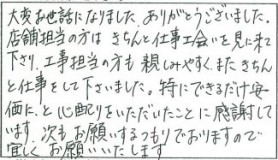 大変お世話になりました。ありがとうございました。
店舗担当の方は きちんと仕事工合いを見に来て
下さり、工事担当の方も 親しみやすく、またきちん
と仕事をして下さいました。特にできるだけ安
価に、と心配りをいただいたことに感謝して
います。次もお願いするつもりでおりますので
宜しくお願いいたします